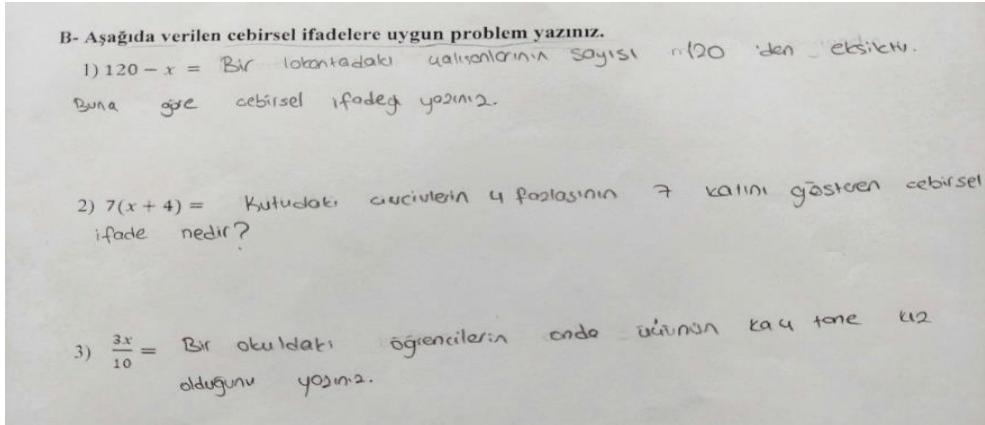 B- Aşağıda verilen cebirsel ifadelere uygun problem yazınız.
1) 120 − x = Bir lokantadaki çalışanlarının sayısı 120 'den eksiktir.
Buna göre cebirsel ifadeyi yazınız.
2) 7(x + 4) = Kutudaki civcivlerin 4 fazlasının 7 katını gösteren cebirsel
ifade nedir?
3) 3x/10 = Bir okuldaki öğrencilerin onda üçünün kaç tane kız
olduğunu yazınız.